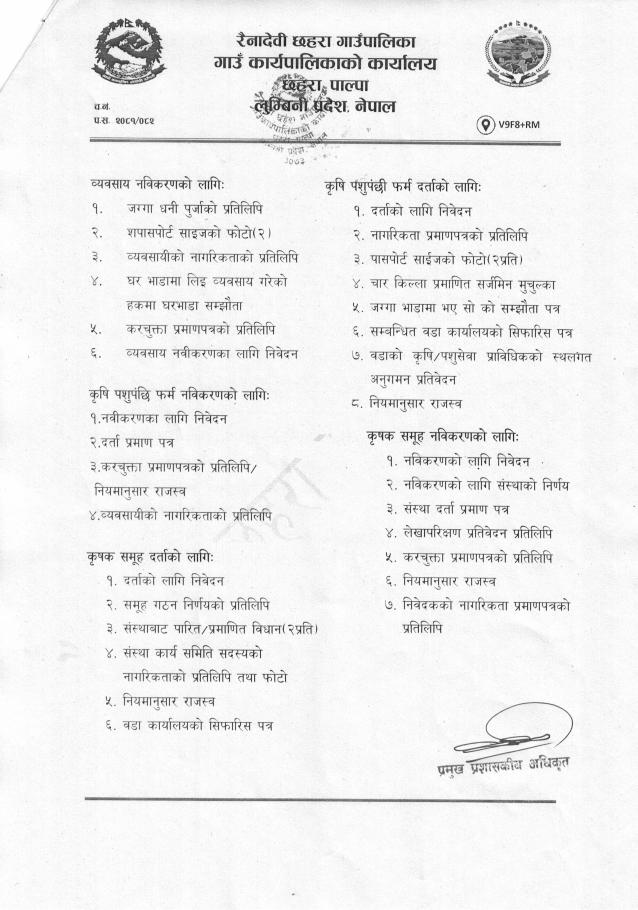 रैनादेवी छहरा गाउँपालिका
गाउँ कार्यपालिकाको कार्यालय
छहरा, पाल्पा
लुम्बिनी प्रदेश, नेपाल
च.नं.
प.स. २०८१/०८२
V9F8+RM
२०७३
व्यवसाय नविकरणको लागिः
१. जग्गा धनी पुर्जाको प्रतिलिपि
२. शपासपोर्ट साइजको फोटो(२)
३. व्यवसायीको नागरिकताको प्रतिलिपि
४. घर भाडामा लिइ व्यवसाय गरेको
हकमा घरभाडा सम्झौता
५. करचुक्ता प्रमाणपत्रको प्रतिलिपि
६. व्यवसाय नवीकरणका लागि निवेदन
कृषि पशुपंछि फर्म नविकरणको लागिः
१.नवीकरणका लागि निवेदन
२.दर्ता प्रमाण पत्र
३.करचुक्ता प्रमाणपत्रको प्रतिलिपि/
नियमानुसार राजस्व
४.व्यवसायीको नागरिकताको प्रतिलिपि
कृषक समूह दर्ताको लागिः
१. दर्ताको लागि निवेदन
२. समूह गठन निर्णयको प्रतिलिपि
३. संस्थाबाट पारित/प्रमाणित विधान(२प्रति)
४. संस्था कार्य समिति सदस्यको
नागरिकताको प्रतिलिपि तथा फोटो
५. नियमानुसार राजस्व
६. वडा कार्यालयको सिफारिस पत्र
कृषि पशुपंछी फर्म दर्ताको लागिः
१. दर्ताको लागि निवेदन
२. नागरिकता प्रमाणपत्रको प्रतिलिपि
३. पासपोर्ट साईजको फोटो(२प्रति)
४. चार किल्ला प्रमाणित सर्जमिन मुचुल्का
५. जग्गा भाडामा भए सो को सम्झौता पत्र
६. सम्बन्धित वडा कार्यालयको सिफारिस पत्र
७. वडाको कृषि/पशुसेवा प्राविधिकको स्थलगत
अनुगमन प्रतिवेदन
८. नियमानुसार राजस्व
कृषक समूह नविकरणको लागिः
१. नविकरणको लागि निवेदन
२. नविकरणको लागि संस्थाको निर्णय
३. संस्था दर्ता प्रमाण पत्र
४. लेखापरिक्षण प्रतिवेदन प्रतिलिपि
५. करचुक्ता प्रमाणपत्रको प्रतिलिपि
६. नियमानुसार राजस्व
७. निवेदकको नागरिकता प्रमाणपत्रको
प्रतिलिपि
प्रमुख प्रशासकीय अधिकृत